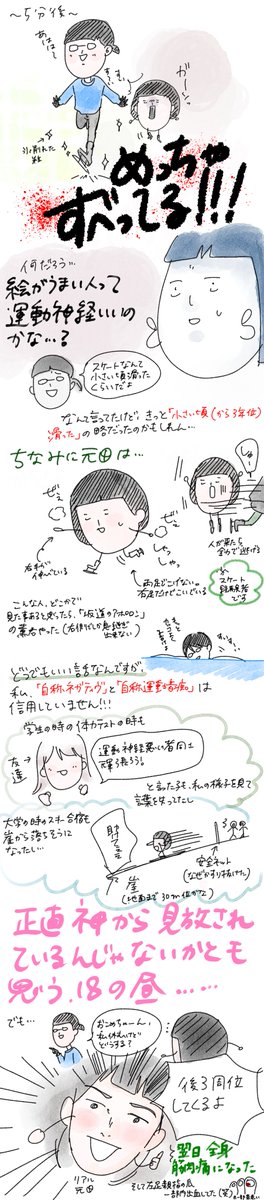 〜5分後〜
あはは
ガーン
すい すい
めっちゃ
すべってる!!!
何だろう…
絵がうまい人って
運動神経いいの
かな…?
スケートなんて
小さい頃滑った
くらいだよ
なんて言ってたけど、きっと「小さい頃(から3年位)
滑った」の略だったのかもしれん…
ちなみに元田は…
ぜぇ
ぜぇ
人が来たら
全力で逃げる
両足でこげない。
右足だけでこいでいる
スケート
経験者
です
こんな人、どこかで
見た事あると思ったら、「坂道のアポロン」
の薫さんだった
どうでもいい話なんですが、
私、「自称ネガティヴ」と「自称運動音痴」は
信用していません!!!
学生の時の体力テストの時も
友達
運動神経悪い者同士
頑張ろう!
と言った子も、私の様子を見て
言葉を失ってたし
大学の時のスキー合宿も
崖から落ちそうに
なったし…
安全ネット
(なぜかすり抜けた)
崖
(地面まで30m位かな)
正直神から見放され
ているんじゃないかとも
思う、18の昼……
でも…
おこめちゃーん、
私休むけど
どうする?
後3周位
してくるよ
リアル
元田
翌日全身
筋肉痛になった
そして左足親指の爪
一部内出血してた(笑)